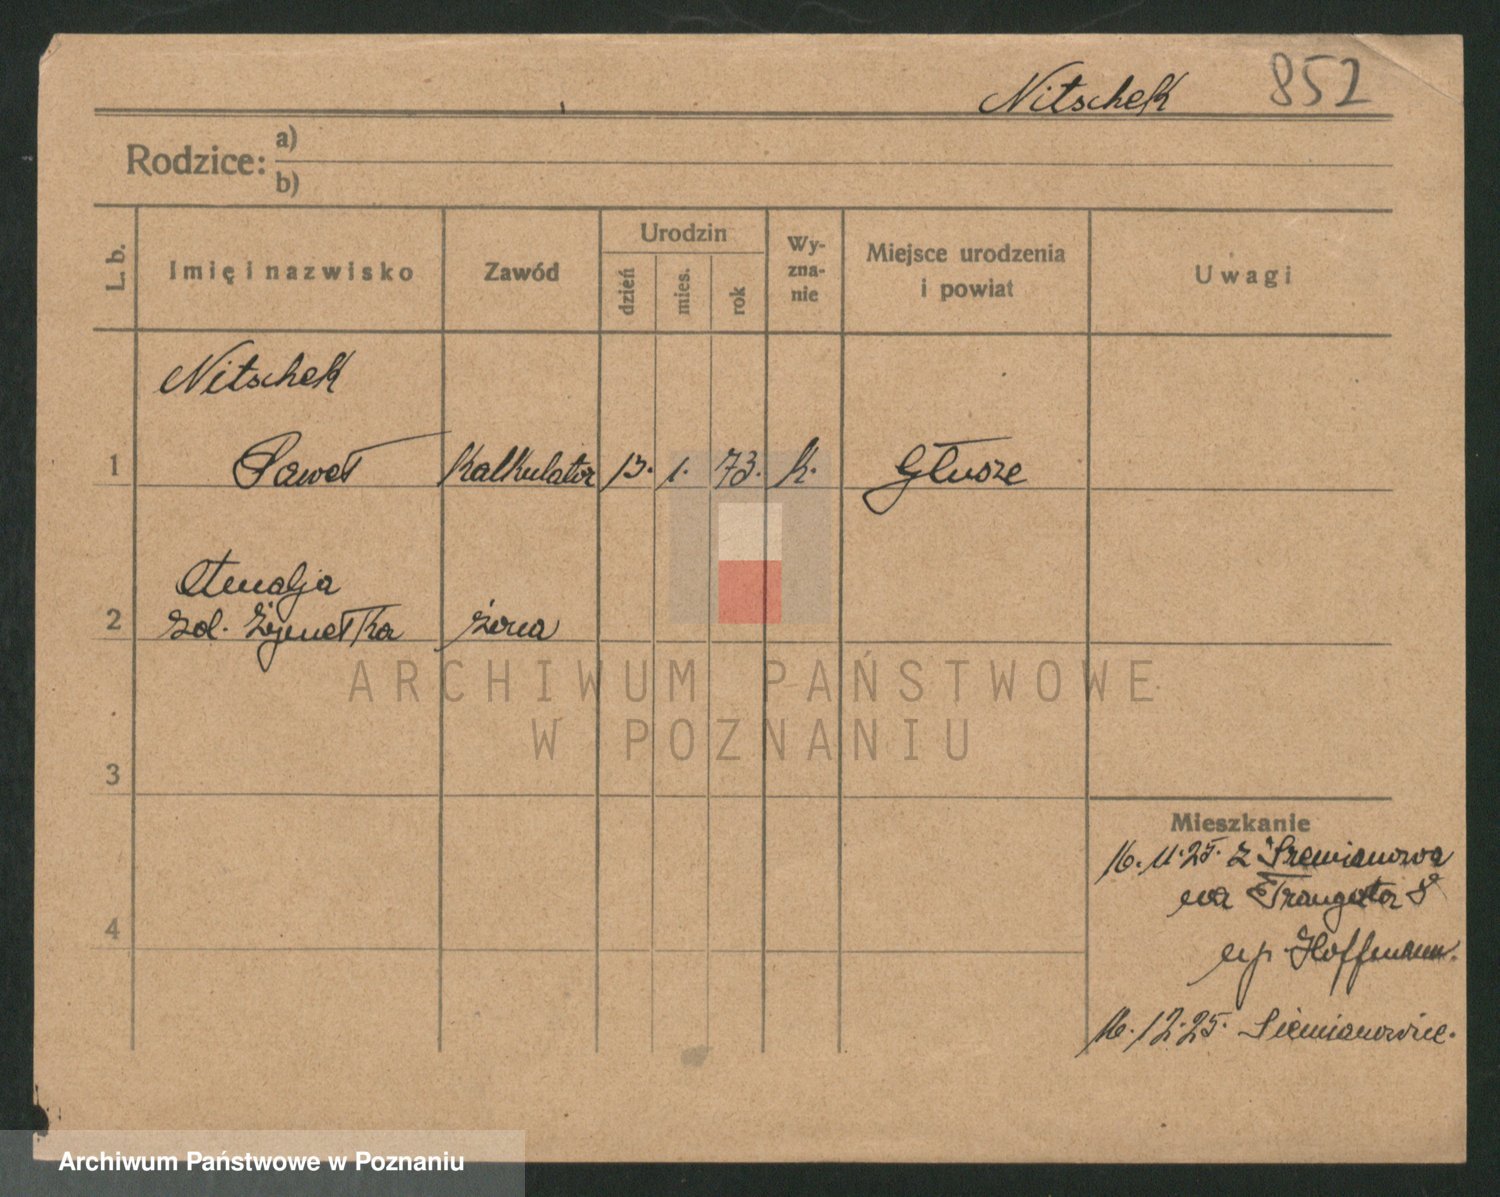 Nitschek 852
Rodzice: a)
b)
L. b. Imię i nazwisko Zawód Urodzin dzień mies. rok Wy-zna-nie Miejsce urodzenia i powiat Uwagi
Nitschek
1 Paweł Kalkulator 13. 1. 73. k. Głusze
Amalja
2 zd. żona
3
Mieszkanie
16. 11. 25. z
na
4
np. Hoffmann.
16. 12. 25. Siemianowice.
ARCHIWUM PAŃSTWOWE
W POZNANIU
Archiwum Państwowe w Poznaniu